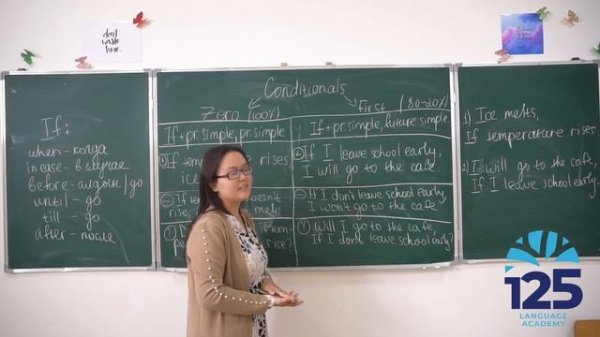 don't
waste
time.
If:
when - когда
in case - в случае
before - алдын / go
until - go
till - go
after - после
Conditionals
Zero (100%)
First (80-20%)
If + pr. simple, pr. simple
If + pr. simple, future simple
If tem rises
ice
If doesn't
rise, melt
If tem-
rise?
If I leave school early,
I will go to the cafe
If I don't leave school early,
I won't go to the cafe
Will I go to the cafe
If I don't leave school early?
1) Ice melts,
If temperature rises
2) I will go to the cafe,
If I leave school early.
125
LANGUAGE
ACADEMY
125
LANGUAGE
ACADEMY